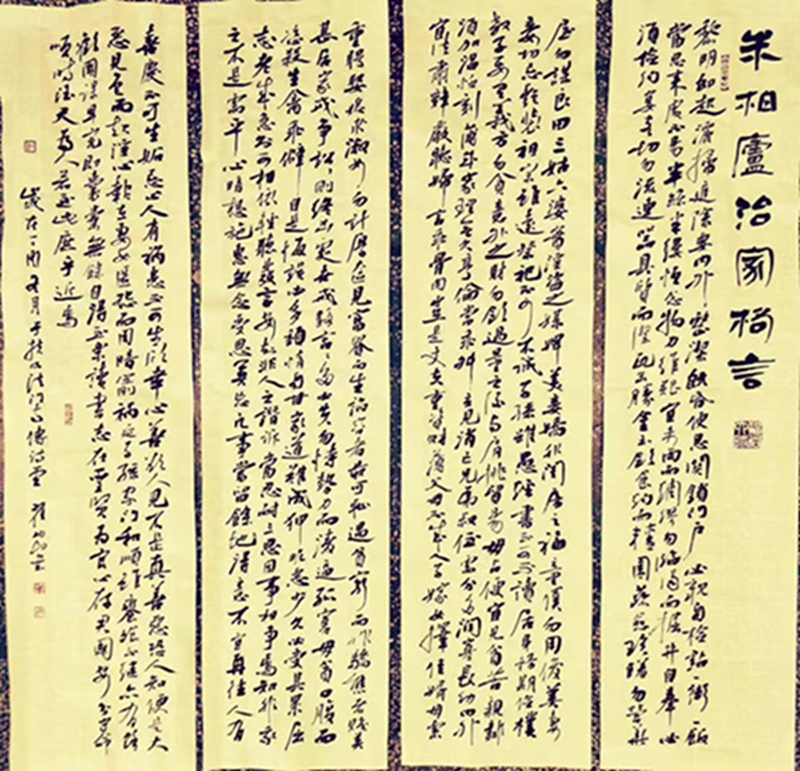 朱柏廬治家格言
黎明即起灑掃庭除要內外整潔既昏便息關鎖門戶必親自檢點一粥一飯
當思來處不易半絲半縷恆念物力維艱宜未雨而綢繆勿臨渴而掘井自奉必
須儉約宴客切勿流連器具質而潔瓦缶勝金玉飲食約而精園蔬愈珍饈勿營華
屋勿謀良田三姑六婆實淫盜之媒婢美妾嬌非閨房之福童僕勿用俊美妻
妾切忌艷裝祖宗雖遠祭祀不可不誠子孫雖愚經書不可不讀居身務期儉樸
教子要有義方勿貪意外之財勿飲過量之酒與肩挑貿易毋占便宜見貧苦親鄰
須加溫恤刻薄成家理無久享倫常乖舛立見消亡兄弟叔侄需分多潤寡長幼內外
宜法肅辭嚴聽婦言乖骨肉豈是丈夫重資財薄父母不成人子嫁女擇佳婿毋索
重聘娶媳求淑女勿計厚奩見富貴而生諂容者最可恥遇貧窮而作驕態者賤莫
甚居家戒爭訟訟則終凶處世戒多言言多必失勿恃勢力而凌逼孤寡毋貪口腹而
恣殺生禽乖僻自是悔誤必多頹惰自甘家道難成狎昵惡少久必受其累屈
志老成急則可相依輕聽發言安知非人之譖訴當忍耐三思因事相爭焉知非我
之不是需平心暗想施惠無念受恩莫忘凡事當留餘地得意不宜再往人有
喜慶不可生妒忌心人有禍患不可生欣幸心善欲人見不是真善惡恐人知便是大
惡見色而起淫心報在妻女匿怨而用暗箭禍延子孫家門和順雖饔飧不繼亦有餘
歡國課早完即囊橐無餘自得至樂讀書志在聖賢為官心存君國安分守命
順時聽天為人若此庶乎近焉
歲在丁酉月於法門山傳詩堂